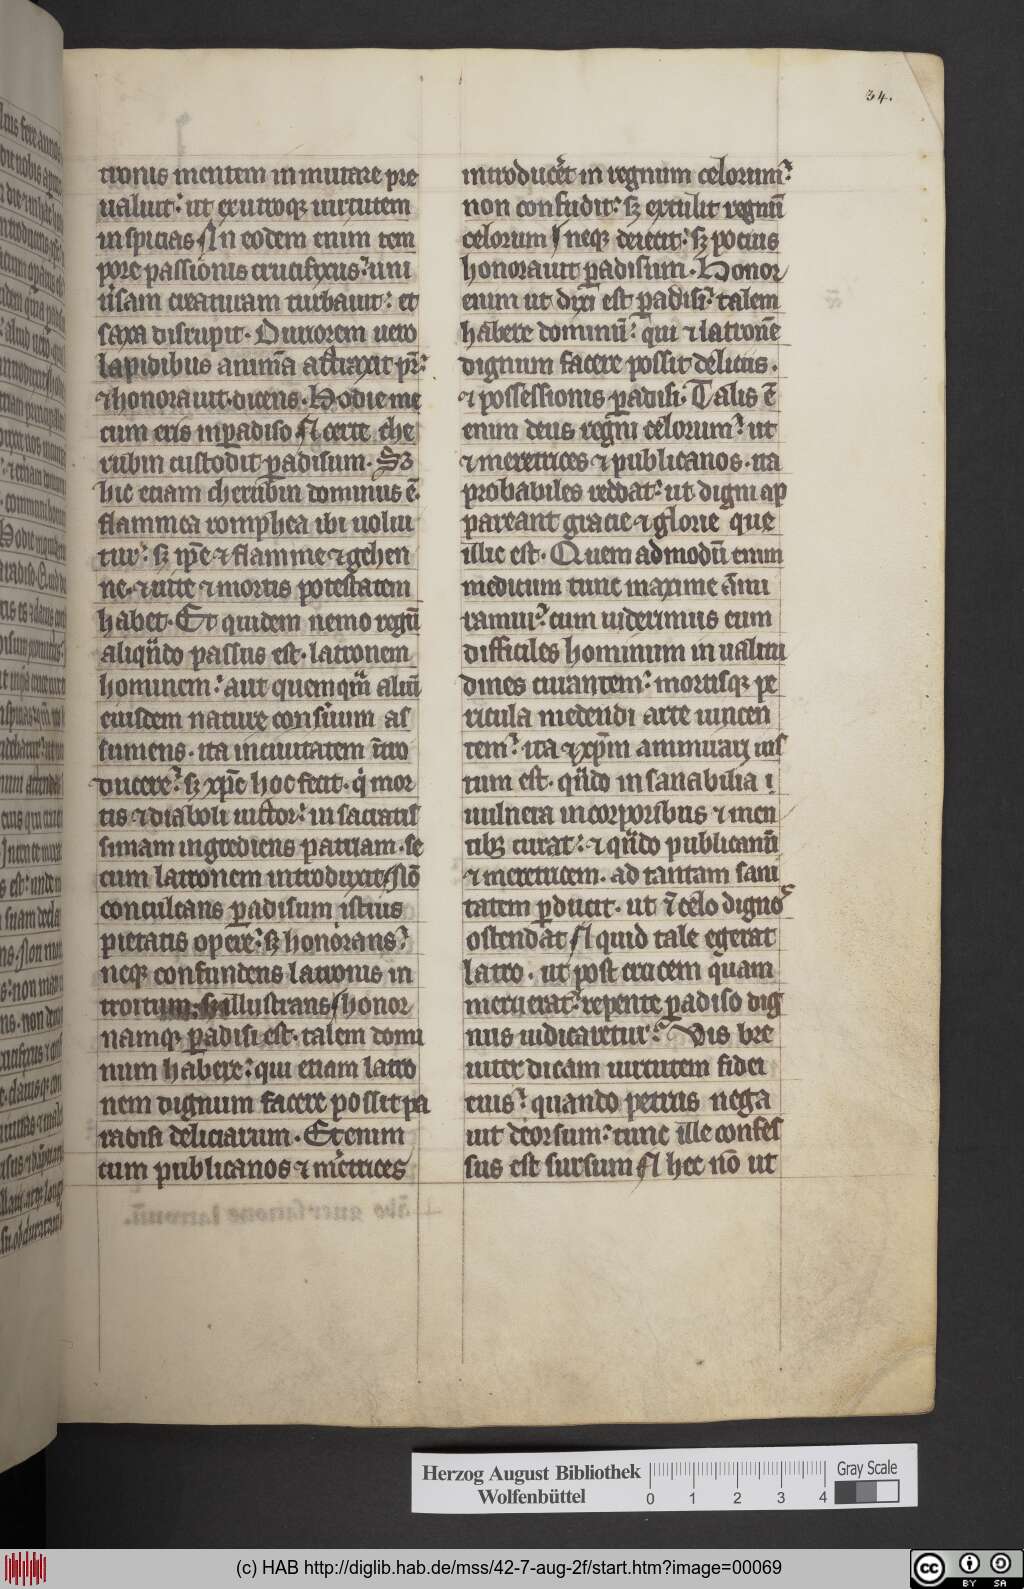 34.
tronis mentem inmutare pre
ualuit: ut ex utroqꝫ uirtutem
inspicias In eodem enim tem
pore passionis crucifixus: uni
ũsam creaturam turbauit: et
saxa disrupit. Duriorem uero
lapidibus animã attraxit pr̃:
⁊ honorauit. dicens. Hodie me
cum eris inꝑadiso Et certe che
rubin custodit ꝑadisum. Sꝫ
hic etiam cherubin dominus ẽ.
flammea romphea ibi uolui
tur: sꝫ ip̃e ⁊ flamme ⁊ gehen
ne. ⁊ uite ⁊ mortis potestatem
habet. Et quidem nemo regũ
aliqñdo passus est. latronem
hominem: aut quemqm̃ aliũ
eiusdem nature conseruum as
sumens. ita inciuitatem ĩtro
ducere: sꝫ xp̃c hoc fecit. qͥ mor
tis ⁊ diaboli uictor: in sacratis
simam ingrediens patriam. se
cum latronem introduxit Nõ
conculcans ꝑadisum istius
pietatis opere: sꝫ honorans:
neqꝫ confundens latronis in
troitum. sꝫ illustrans honor
namqꝫ ꝑadisi est. talem domi
num habere: qui etiam latro
nem dignum facere possit pa
radisi deliciarum. Etenim
cum publicanos ⁊ m̃etrices
introducẽt in regnum celorum:
non confudit: sꝫ extulit regnũ
celorum neqꝫ deiecit: sꝫ pocius
honorauit ꝑadisum. Honor
enim ut dixi est ꝑadisi: talem
habere dominũ: qui ⁊ latronẽ
dignum facere possit delitiis.
⁊ possessionis ꝑadisi. Talis ẽ
enim deus regni celorum: ut
⁊ meretrices ⁊ publicanos. ita
probabiles reddat: ut digni ap
pareant gracie ⁊ glorie que
illic est. Quem admodũ enim
medicum tunc maxime ãmi
ramur: cum uiderimus eum
difficiles hominum in ualitu
dines curantem: mortisqꝫ pe
ricula medendi arte uincen
tem: ita ⁊ xp̃m ammirari ius
tum est. qñdo in sanabilia
uulnera in corporibus ⁊ men
tibꝫ curat: ⁊ qñdo publicanũ
⁊ meretricem. ad tantam sani
tatem ꝑducit. ut ĩ celo dignos
ostendat Et quid tale egerat
latro. ut post crucem quam
meruerat: repente ꝑadiso dig
nus iudicaretur: Vis bre
uiter dicam uirtutem fidei
eius: quando petrus nega
uit deorsum: tunc ille confes
sus est sursum Et hec nõ ut
Herzog August Bibliothek
Wolfenbüttel
0 1 2 3 4
Gray Scale
(c) HAB http://diglib.hab.de/mss/42-7-aug-2f/start.htm?image=00069
cc BY SA